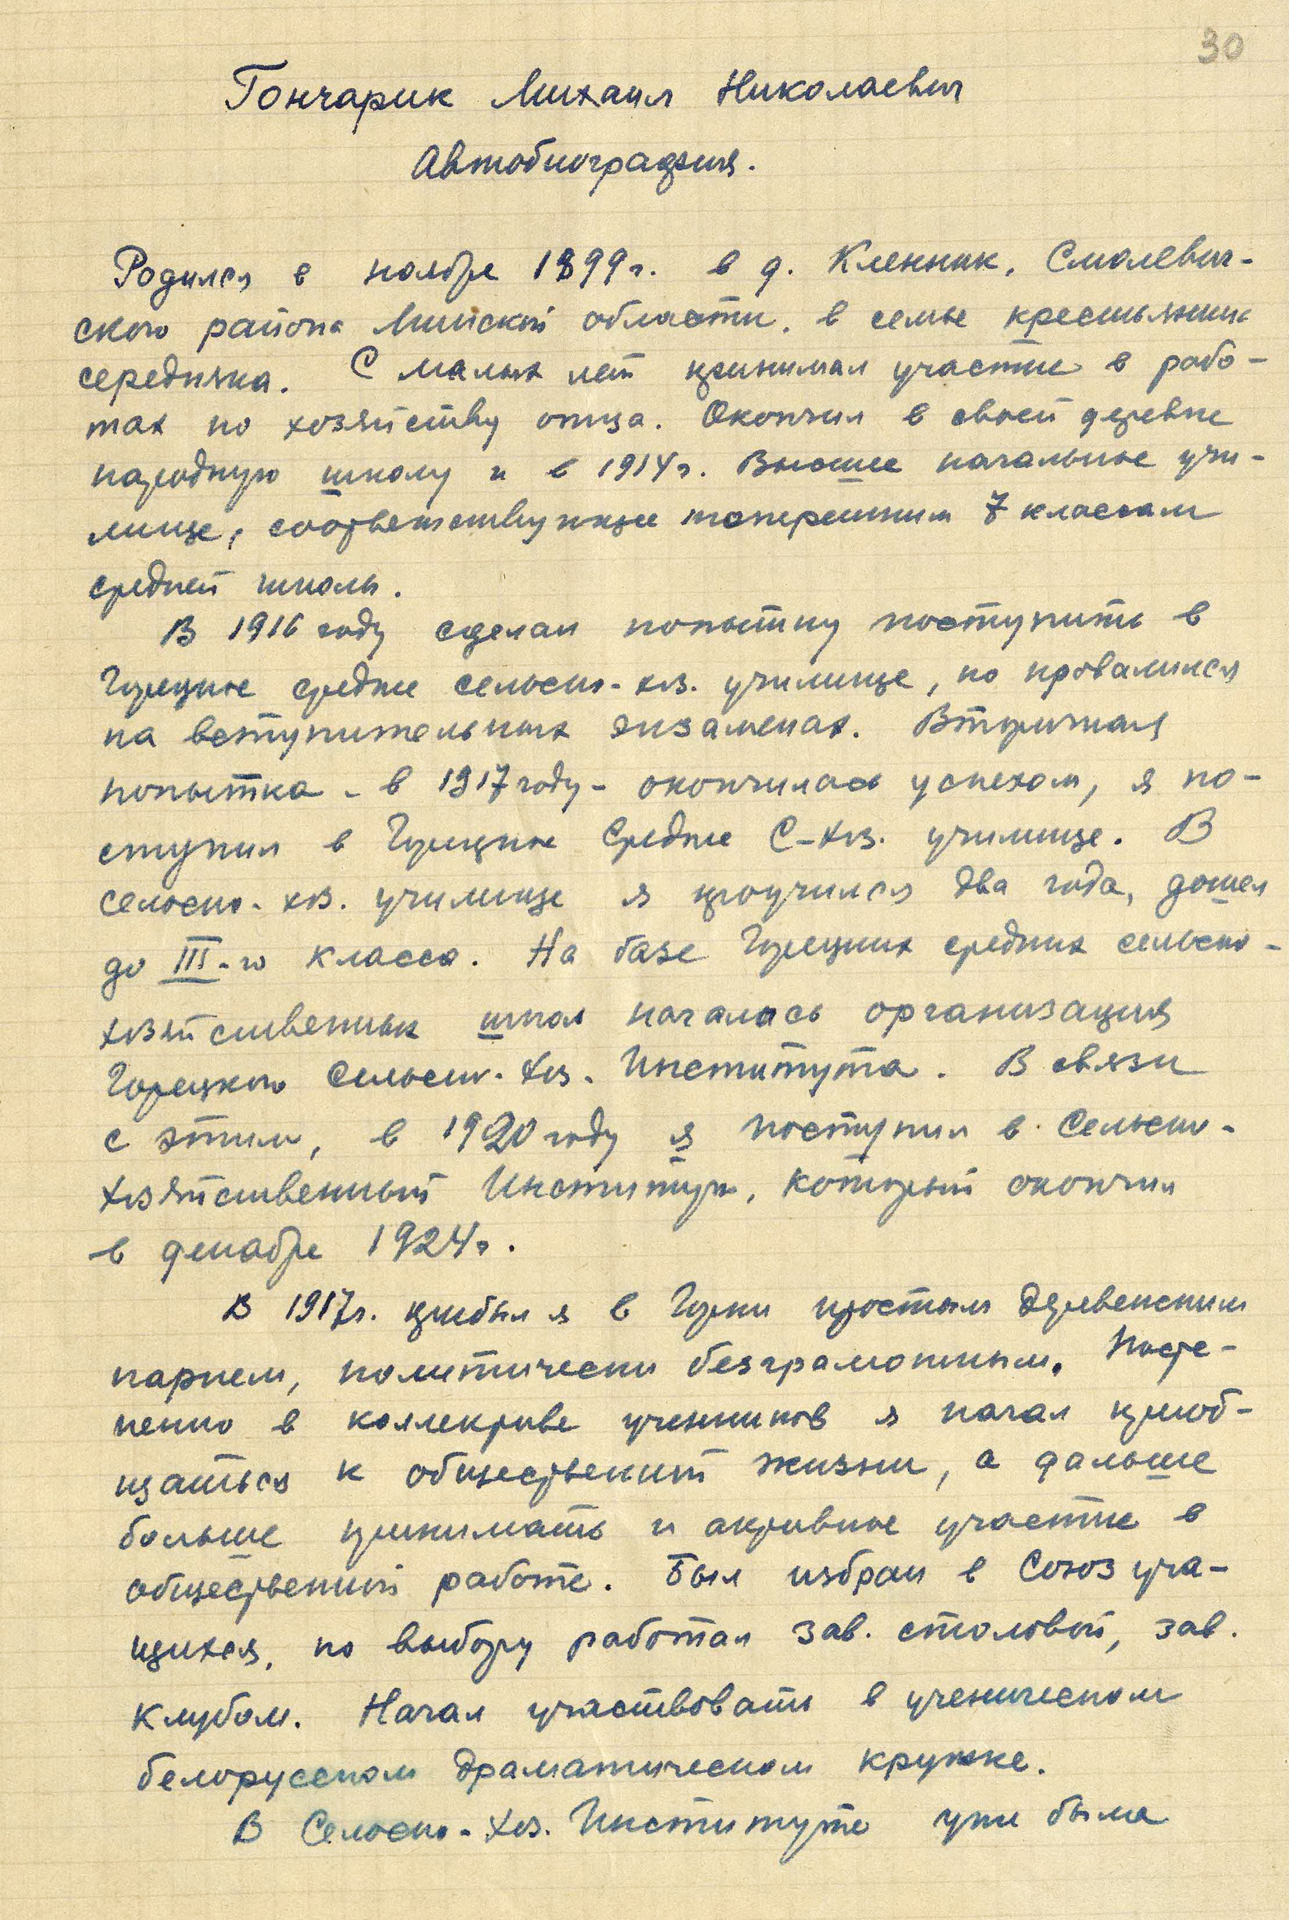 30
Гончарик Михаил Николаевич
Автобиография.
Родился в ноябре 1899г. в д. Кленник, Смолевич-
ского района Минской области, в семье крестьянина
середняка. С малых лет принимал участие в рабо-
тах по хозяйству отца. Окончил в своей деревне
народную школу и в 1914г. Высшее начальное учи-
лище, соответствующее теперешним 7 классам
средней школы.
В 1916 году сделал попытку поступить в
Горецкое средне сельско-хоз. училище, но провалился
на вступительных экзаменах. Вторичная
попытка - в 1917 году - окончилась успехом, я по-
ступил в Горецкое Средне С-хоз. училище. В
сельско-хоз. училище я проучился два года, дошел
до III-го класса. На базе Горецких средних сельско-
хозяйственных школ началась организация
Горецкого Сельско-хоз. Института. В связи
с этим, в 1920 году я поступил в Сельско-
хозяйственный Институт, который окончил
в декабре 1924г.
В 1917г. прибыл я в Горки простым деревенским
парнем, политически безграмотным. Посте-
пенно в коллективе учеников я начал приоб-
щаться к общественной жизни, а дальше
больше принимать и активное участие в
общественной работе. Был избран в Союз уча-
щихся, по выбору работал зав. столовой, зав.
клубом. Начал участвовать в ученическом
белорусском драматическом кружке.
В Сельско-хоз. Институте уже была